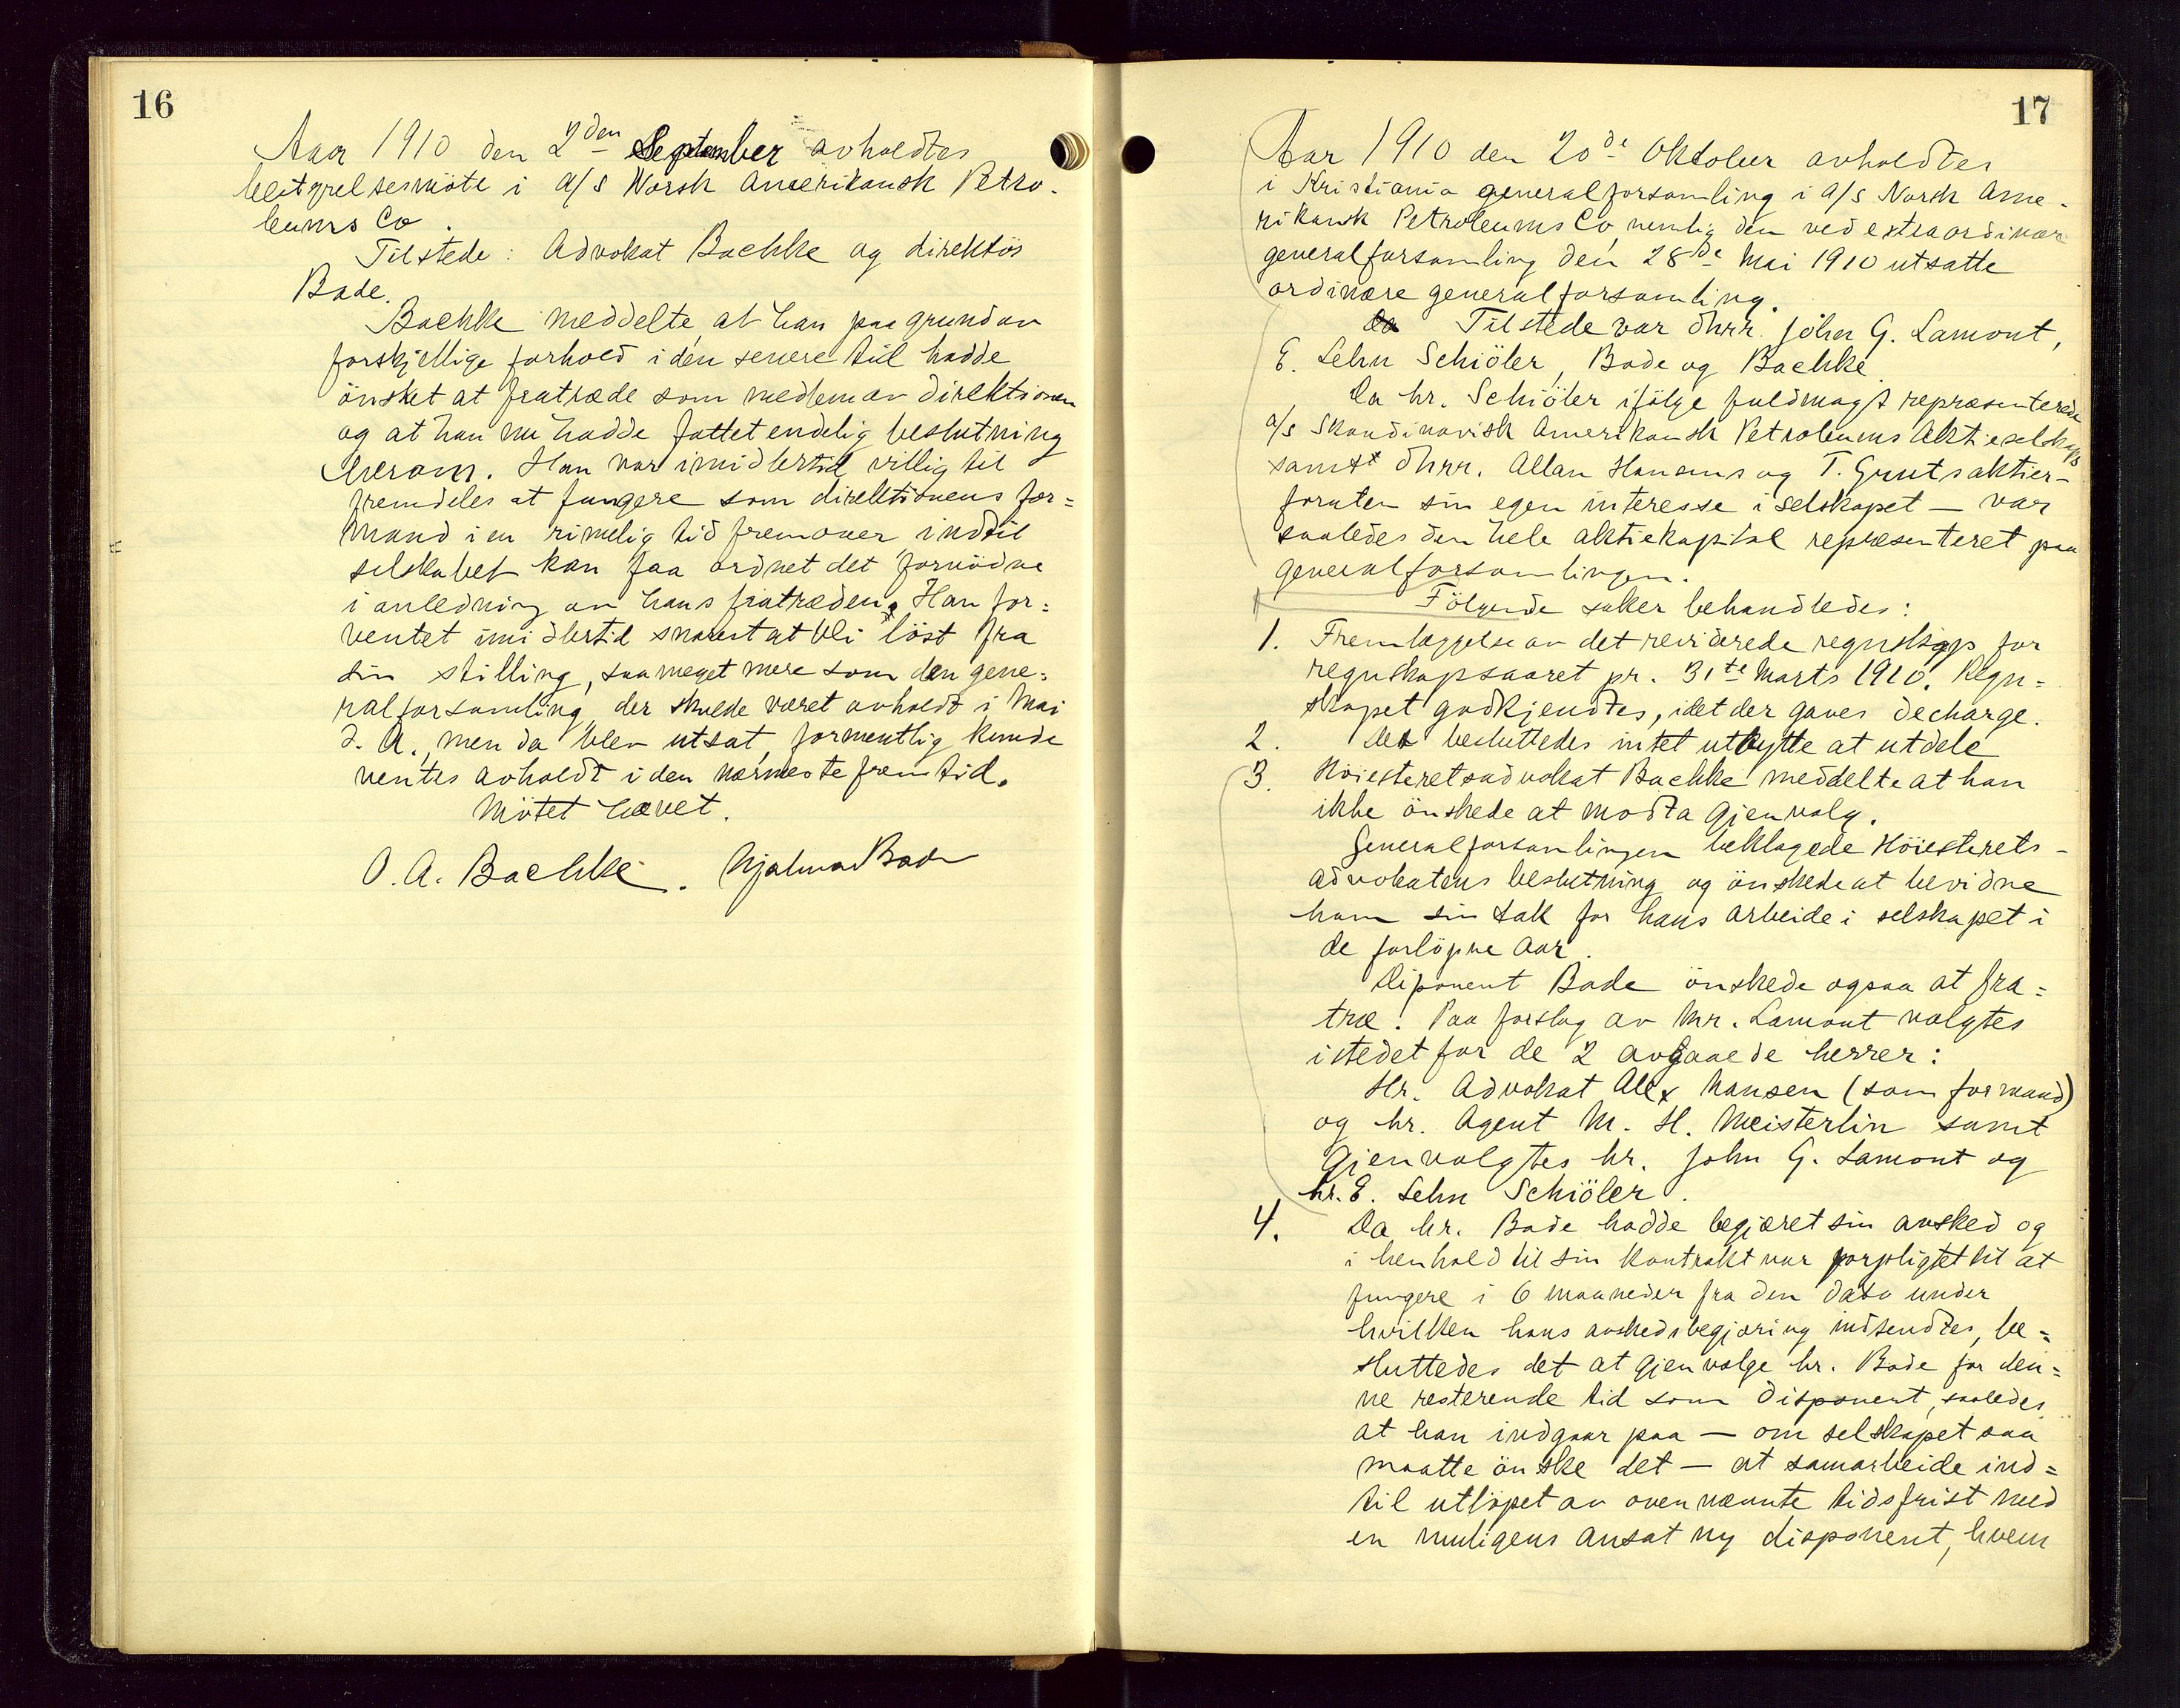 16
Aar 1910 den 2den September avholdtes
bestyrelsesmöte i A/S Norsk Amerikansk Petro-
leums Co.
Tilstede: Advokat Bachke og direktör
Bade.
Bachke meddelte, at han paa grund av
forskjellige forhold i den senere tid hadde
önsket at fratræde som medlem av direktionen
og at han nu hadde fattet endelig beslutning
herom. Han var imidlertid villig til
fremdeles at fungere som direktionens for=
mand i en rimelig tid fremover indtil
selskabet kan faa ordnet det fornödne
i anledning av hans fratræden. Han for=
ventet imidlertid snarest at bli löst fra
sin stilling, saa meget mere som den gene=
ralforsamling, der skulde været avholdt i Mai
d. A., men da blev utsat, formentlig kunde
ventes avholdt i den nærmeste fremtid.
Mötet hævet.
O. A. Bachke. Hjalmar Bade
17
Aar 1910 den 20de Oktober avholdtes
i Kristiania generalforsamling i A/S Norsk Ame-
rikansk Petroleums Co, nemlig den ved extraordinær
generalforsamling den 28de Mai 1910 utsatte
ordinære generalforsamling.
Da Tilstede var dhrr. John G. Lamont,
E. Lehn Schiöler, Bade og Bachke.
Da hr. Schiöler ifölge fuldmagt repræsenterede
A/S Skandinavisk Amerikansk Petroleums Aktieselskaps
samt dhrr. Allan Hanens og T. Gruts aktier-
foruten sin egen interesse i selskapet — var
saaledes den hele aktiekapital repræsenteret paa
generalforsamlingen.
Fölgende saker behandledes:
1. Fremlæggelse av det reviderede regnskap for
regnskapsaaret pr. 31te Marts 1910. Regn=
skapet godkjendtes, idet der gaves decharge.
2. Det besluttedes intet utbytte at utdele
3. Höiesteretsadvokat Bachke meddelte at han
ikke önskede at modta gjenvalg.
Generalforsamlingen beklagede Höiesterets-
advokatens beslutning og önskede at bevidne
ham sin tak for hans arbeide i selskapet i
de forlöpne aar.
Diponent Bade önskede ogsaa at fra=
træ. Paa forslag av Mr. Lamont valgtes
istedet for de 2 avgaaede herrer:
Hr. Advokat Alex Hansen (som formand)
og hr. Agent M. H. Meisterlin samt
Gjenvalgtes hr. John G. Lamont og
hr. E. Lehn Schiöler.
4. Da hr. Bade hadde begjæret sin avsked og
i henhold til sin kontrakt var forpligtet til at
fungere i 6 maaneder fra den dato under
hvilken hans avskedsbegjæring indsendtes, be=
sluttedes det at gjenvælge hr. Bade for den=
ne resterende tid som disponent, saaledes
at han indgaar paa — om selskapet saa
maatte önske det — at samarbeide ind=
til utlöpet av ovennævnte tidsfrist med
en muligens ansat ny disponent, hvem